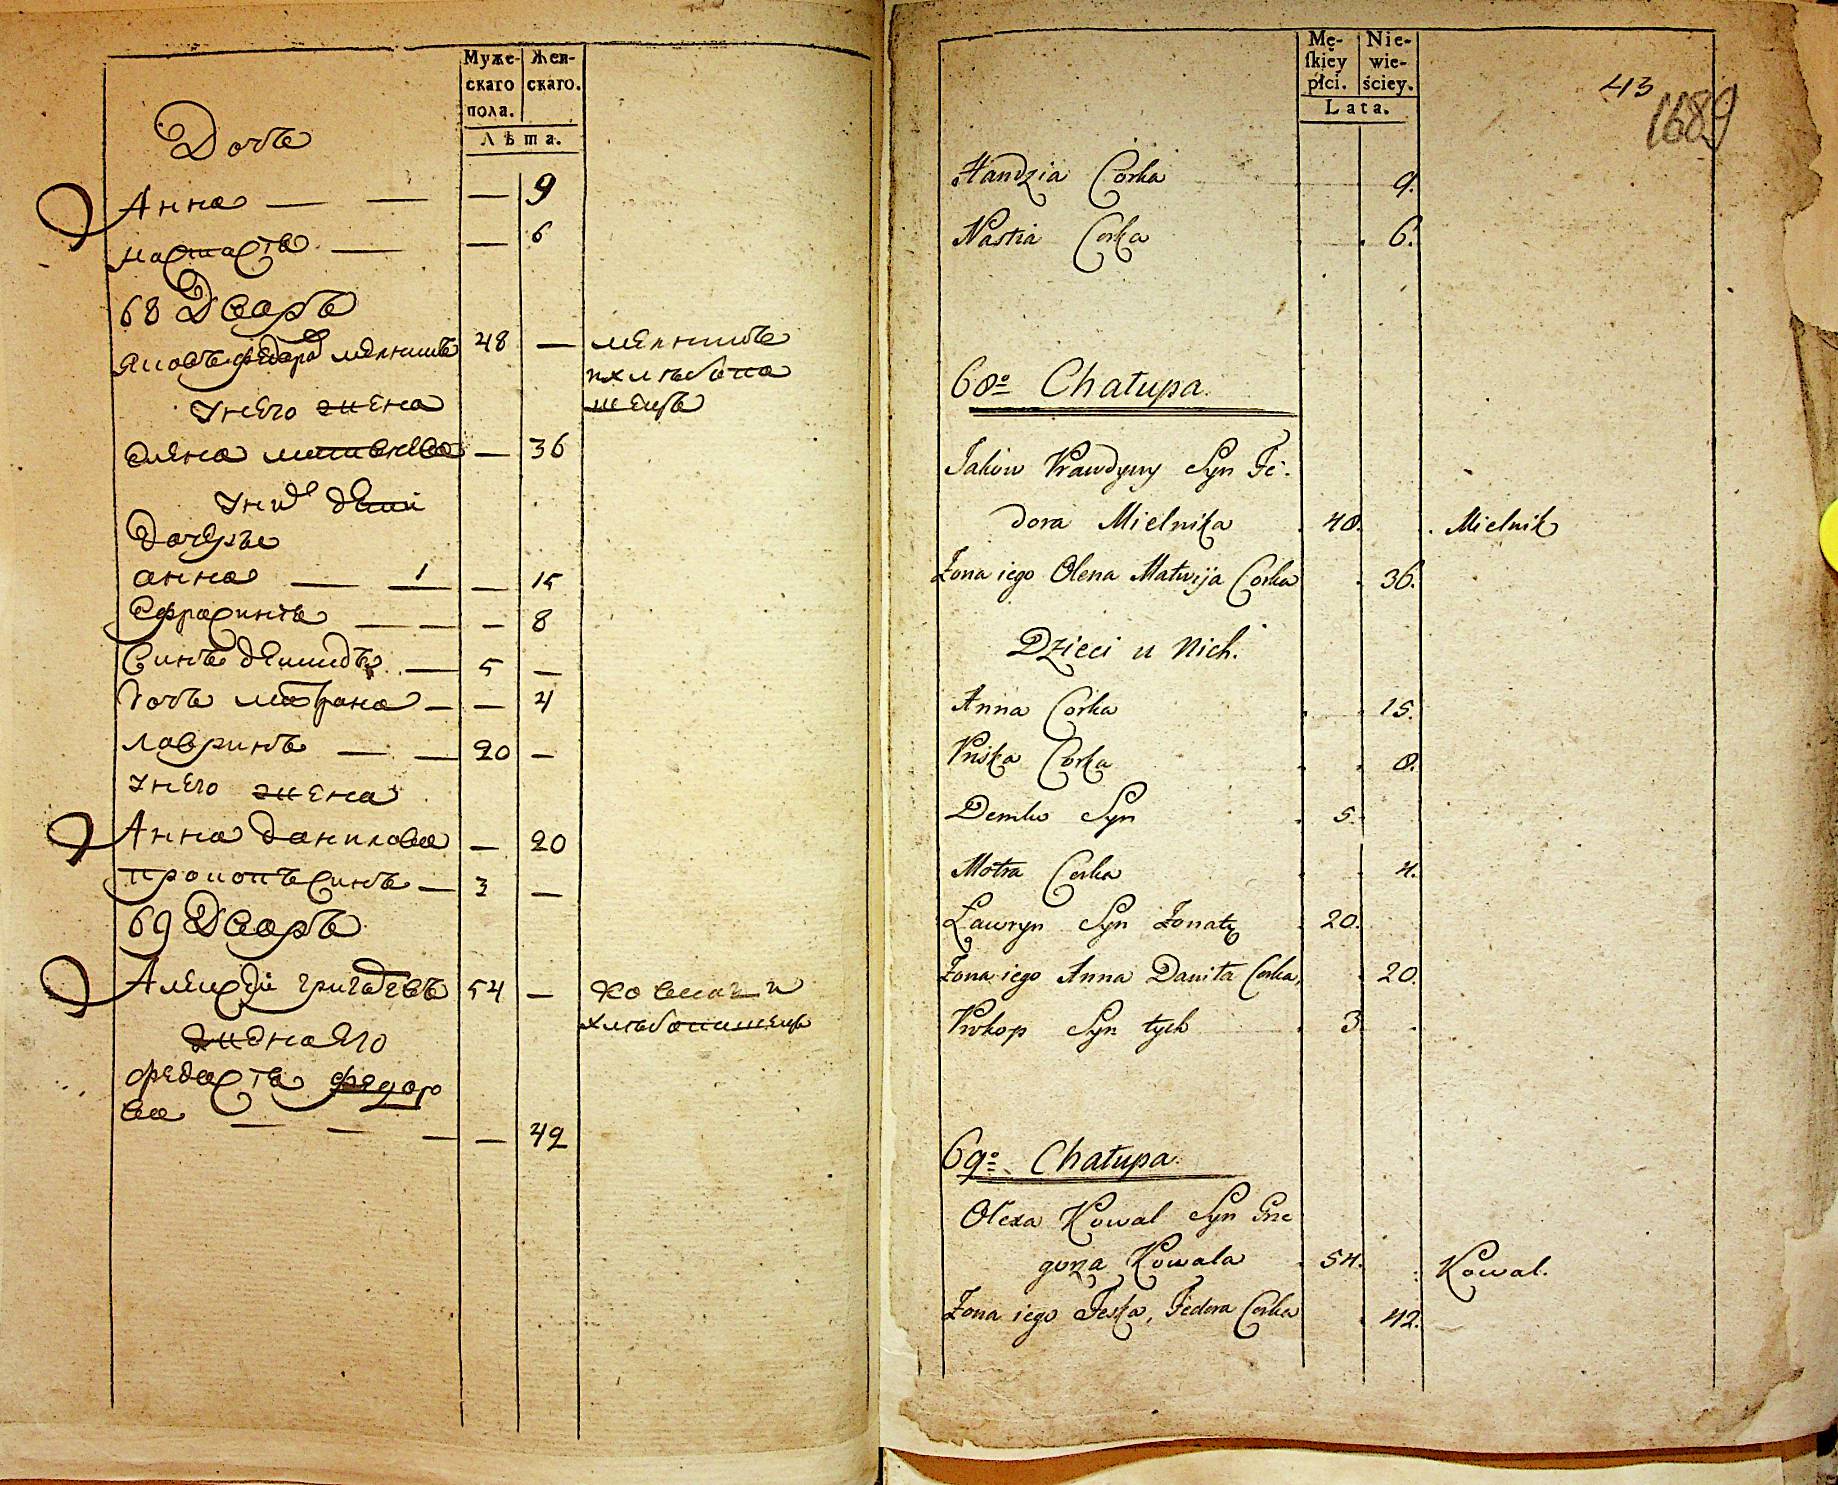 Муже-
скаго
пола.
Жен-
скаго.
Лѣта.
Дочь
Анна — — — 9
настастъя — — 6
68 Дворъ
Яковъ федоров мелникъ 48 — мелникъ
ихлѣбопа
шецъ
Унего жена
олена матвѣева — 36
Уних дети
дочерье
анна — 1 — 15
Ефросинья — — — 8
Синъ демидъ — 5 —
дочь матрона — — 4
лавринъ — — 20 —
Унего жена
Анна данилова — 20
прокопъ синъ — 3 —
69 Дворъ
Алексѣй григорьевъ 54 — ковалъ и
хлѣбопашецъ
жена его
федостя федоро
ва — — — — 42
Mę-
ſkiey
płci.
Nie-
wie-
ściey.
Lata.
43
1689
Handzia Corka 9.
Nastia Corka 6.
68o Chałupa.
Jakow Prawdywy Syn Fe-
dora Mielnika 48. Mielnik
Żona iego Olena Matwija Corka 36.
Dzieci u Nich.
Anna Corka 15.
Priska Corka 8.
Demko Syn 5.
Motra Corka 4.
Ławryn Syn Żonaty 20.
Żona iego Anna Daniła Corka, 20.
Prokop Syn tych 3.
69o Chałupa.
Olexa Kowal Syn Grze
gorza Kowala 54. Kowal.
Żona iego Feśka, Fedora Corka 42.